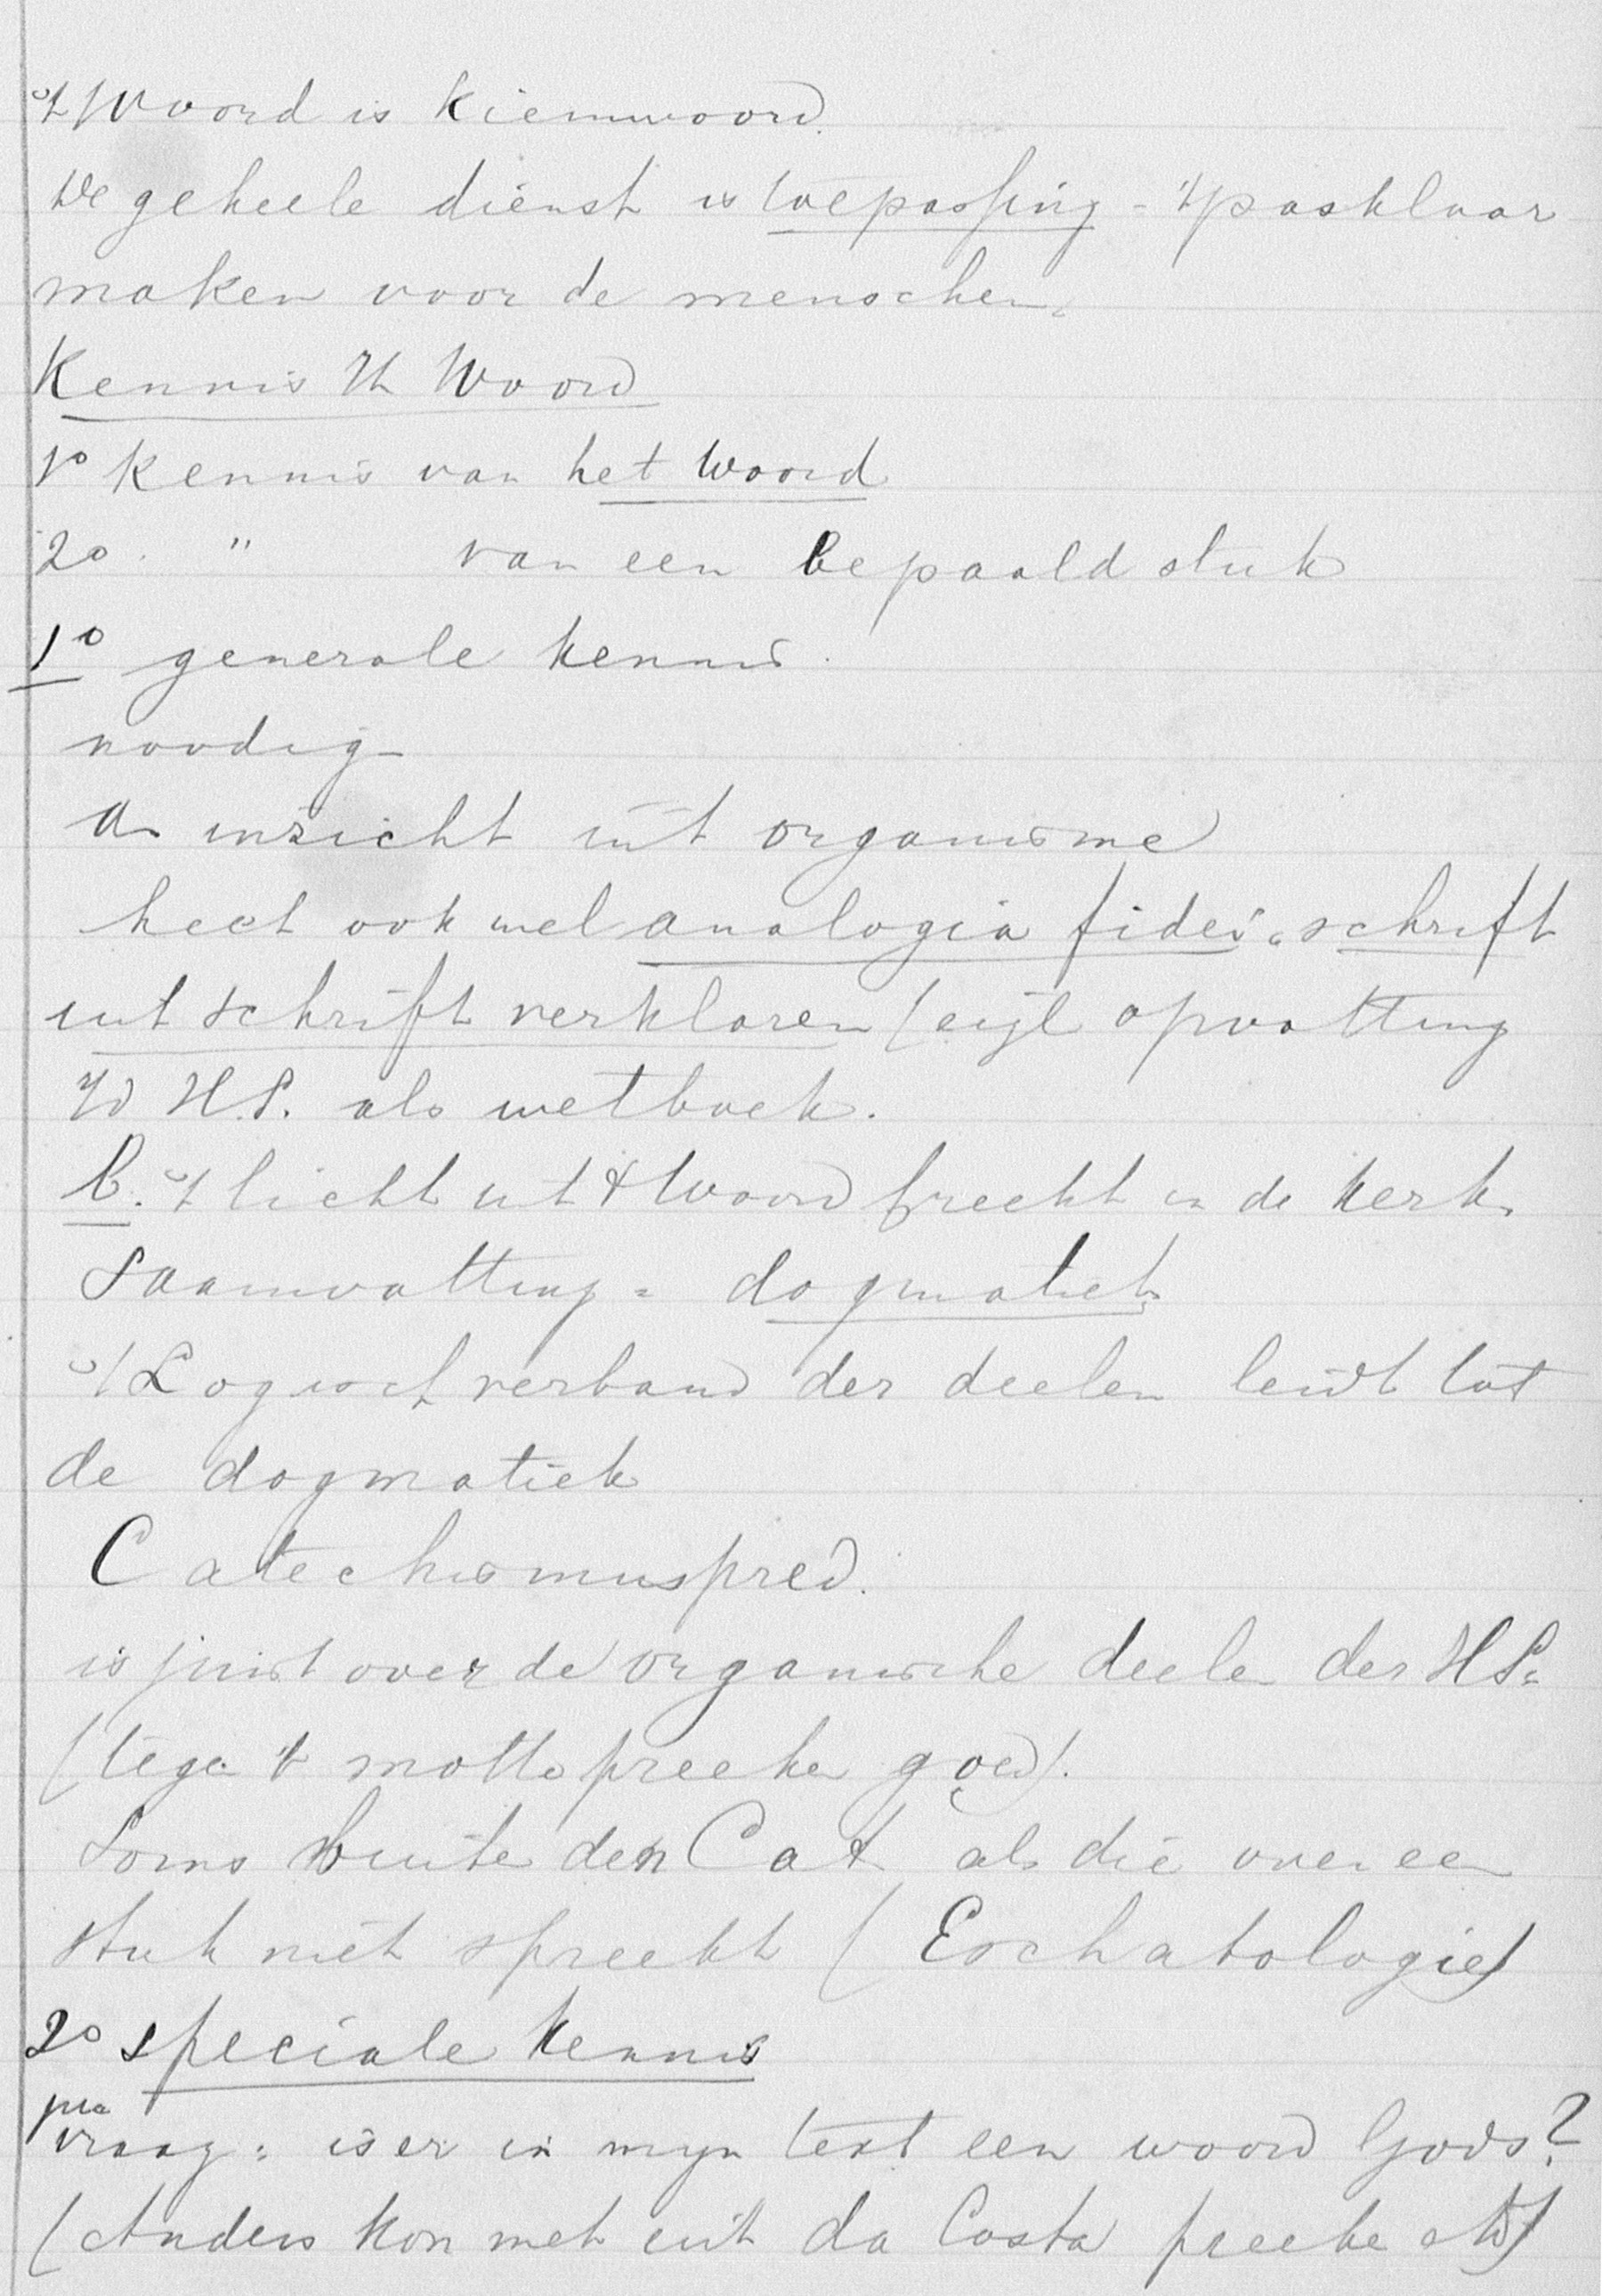 't Woord is Kiemwoord.
De geheele dienst is toepassing = 't pasklaar
maken voor de menschen.
Kennis vh Woord
1o Kennis van het Woord
2o. " van een bepaald stuk
1o generale kennis.
noodig
a inzicht in 't organisme
heet ook wel analogia fidei "schrift
uit schrift verklaren (eigl opvatting
vd H.S. als wetboek.
b. 't licht uit 't Woord breekt in de kerk.
Saamvatting = dogmatiek
't Logisch verband der deelen leidt tot
de dogmatiek
Catechismuspred.
is juist over de organische deelen der HS.
(tegen 't mottopreeken goed).
Soms buiten den Cat als die over een
stuk niet spreekt (Eschatologie)
2o speciale Kennis
vraag: is er in mijn text een woord Gods?
(Anders kon met uit da Costa preeken etc)